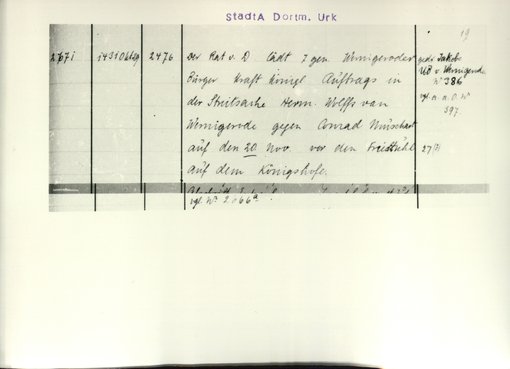 StadtA Dortm. Urk
19
2671 1431 Okt 29 2476 Der Rat v. D. lädt 7 gen. Wernigeroder
Bürger kraft königl. Auftrags in
der Streitsache Herm. Wolffs van
Wernigerode gegen Conrad
auf den 20 Nov. vor den Freistuhl
auf dem Königshofe.
gedr. Jakobs
UB v. Wernigerode
N° 386
vgl. a. a. O. N°
397
vgl. N° 2666a